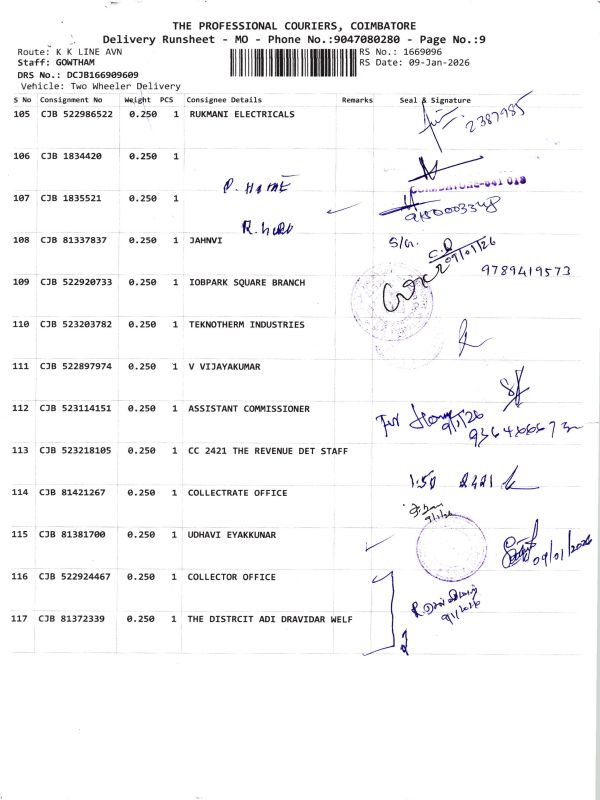 THE PROFESSIONAL COURIERS, COIMBATORE
Delivery Runsheet - MO - Phone No.:9047080280 - Page No.:9
Route: K K LINE AVN RS No.: 1669096
Staff: GOWTHAM RS Date: 09-Jan-2026
DRS No.: DCJB166909609
Vehicle: Two Wheeler Delivery
S No Consignment No Weight PCS Consignee Details Remarks Seal & Signature
105 CJB 522986522 0.250 1 RUKMANI ELECTRICALS
2387985
106 CJB 1834420 0.250 1
P. HOME
641 018
107 CJB 1835521 0.250 1
108 CJB 81337837 0.250 1 JAHNVI
09/01/26
9789419573
109 CJB 522920733 0.250 1 IOBPARK SQUARE BRANCH
110 CJB 523203782 0.250 1 TEKNOTHERM INDUSTRIES
111 CJB 522897974 0.250 1 V VIJAYAKUMAR
112 CJB 523114151 0.250 1 ASSISTANT COMMISSIONER
9/1/26
113 CJB 523218105 0.250 1 CC 2421 THE REVENUE DET STAFF
1:50 2421
114 CJB 81421267 0.250 1 COLLECTRATE OFFICE
9/1/26
115 CJB 81381700 0.250 1 UDHAVI EYAKKUNAR
09/01/2026
116 CJB 522924467 0.250 1 COLLECTOR OFFICE
117 CJB 81372339 0.250 1 THE DISTRCIT ADI DRAVIDAR WELF